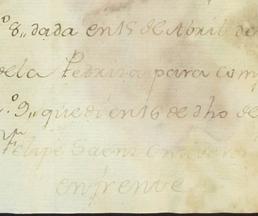 º 8,, dada en 15 de Abril de
de la Pedriza para com
º 9,, que di en 16 de dho de
Felipe Saenz
enfrente